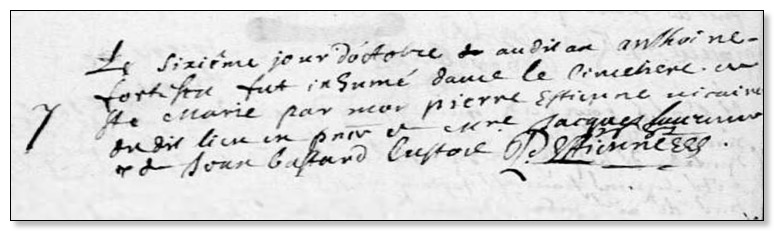 Le sixiéme jour d'octobre audit an anthoine
fut inhumé dans le Simetiere de
Ste Marie par moy pierre Estienne vicaire
du dit lieu en pnce de Mre Jacques
et de Jean bastard Custode P. Estienne